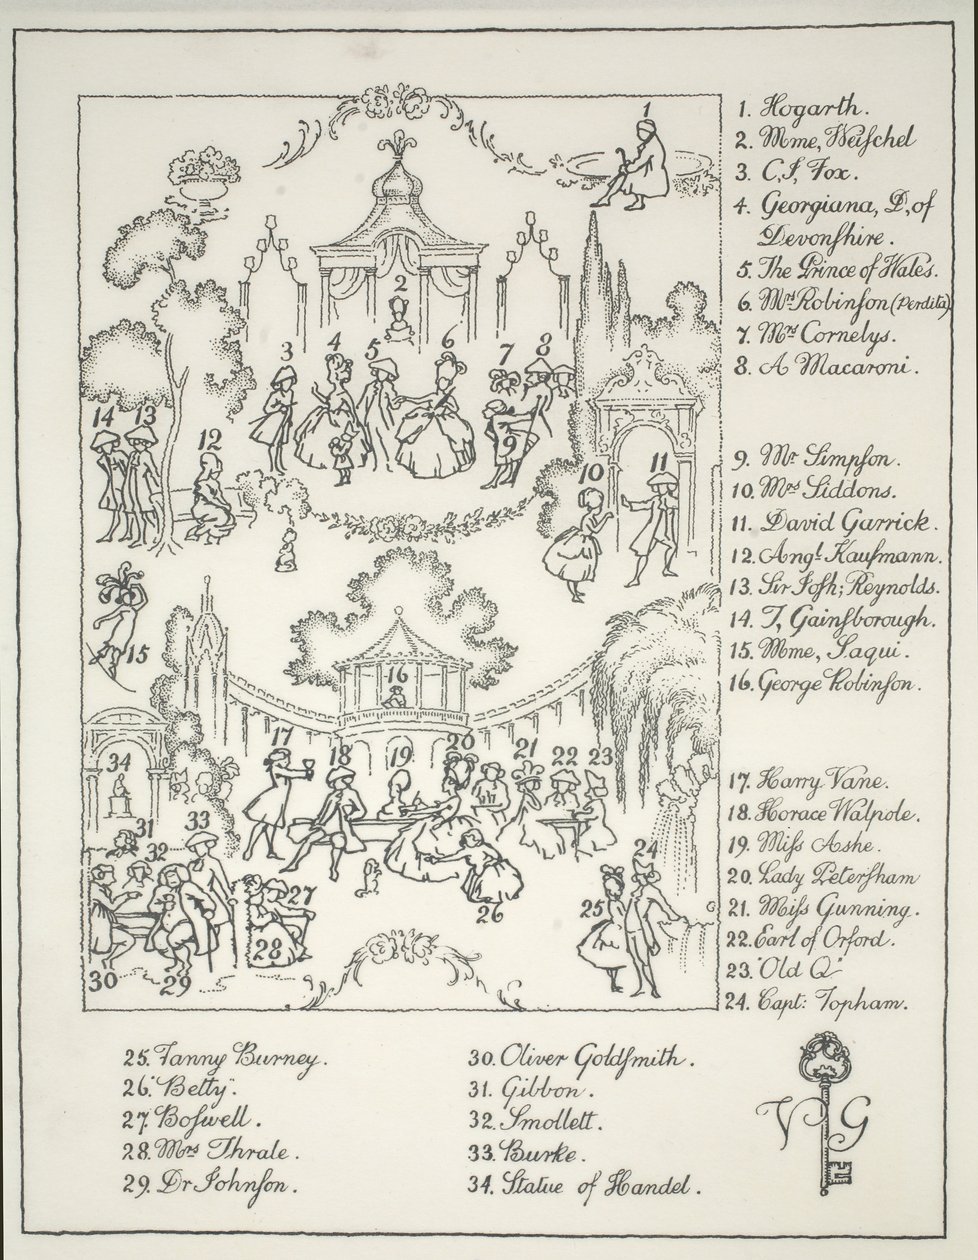 1. Hogarth.
2. Mme, Weiſchel
3. C, J, Fox.
4. Georgiana, D, of
Devonſhire.
5. The Prince of Wales.
6. Mrs Robinſon (Perdita)
7. Mrs Cornelys.
8. A Macaroni.
9. Mr Simpſon.
10. Mrs Siddons.
11. David Garrick.
12. Angl. Kaufmann.
13. Sir Joſh; Reynolds.
14. T, Gainſborough.
15. Mme, Saqui.
16. George Robinſon.
17. Harry Vane.
18. Horace Walpole.
19. Miſs Ashe.
20. Lady Peterſham
21. Miſs Gunning.
22. Earl of Orford.
23. "Old Q"
24. Capt: Topham.
25. Fanny Burney.
26. "Betty".
27. Boſwell.
28. Mrs Thrale.
29. Dr Johnſon.
30. Oliver Goldſmith.
31. Gibbon.
32. Smollett.
33. Burke.
34. Statue of Handel.
V G
1
2
3
4
5
6
7
8
9
10
11
12
13
14
15
16
17
18
19
20
21
22
23
24
25
26
27
28
29
30
31
32
33
34